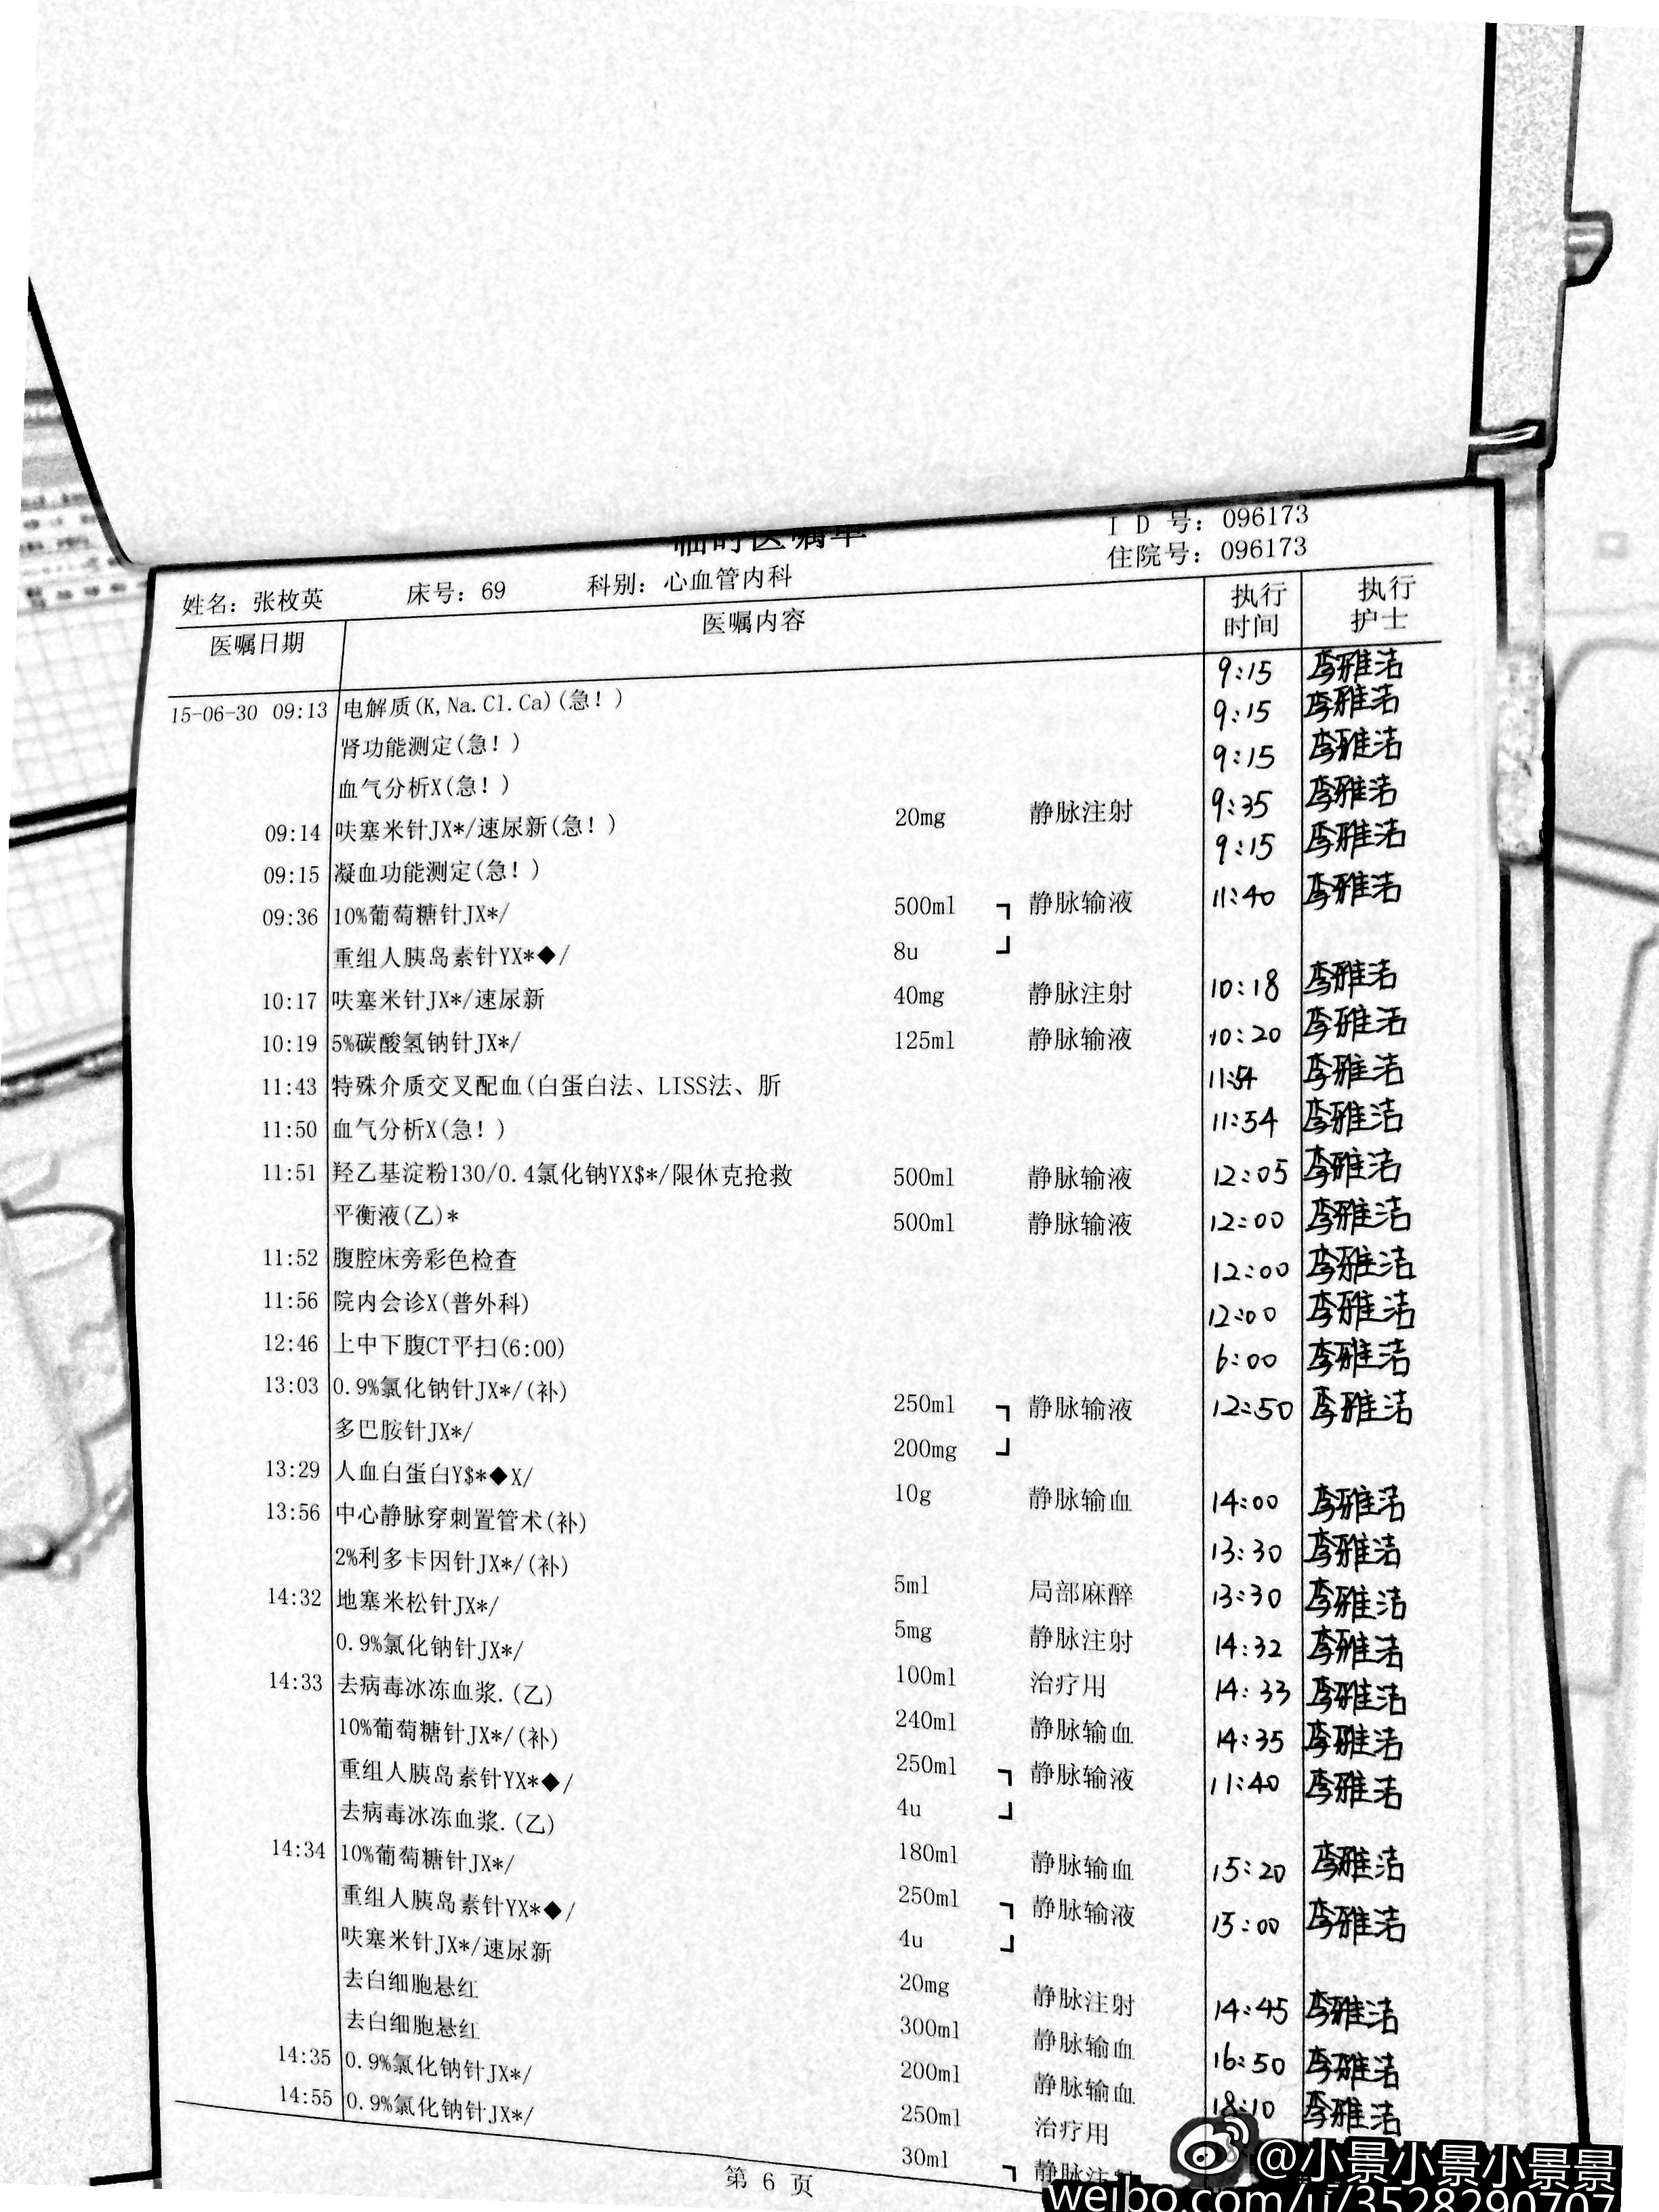 临时医嘱单
ID号：096173
住院号：096173
姓名：张枚英 床号：69 科别：心血管内科
医嘱日期 医嘱内容 执行时间 执行护士
15-06-30 09:13 电解质(K,Na.Cl.Ca)(急！) 9:15 李雅洁
肾功能测定(急！) 9:15 李雅洁
血气分析X(急！) 9:15 李雅洁
09:14 呋塞米针JX*/速尿新(急！) 20mg 静脉注射 9:35 李雅洁
09:15 凝血功能测定(急！) 9:15 李雅洁
09:36 10%葡萄糖针JX*/ 500ml ┓ 静脉输液 11:40 李雅洁
重组人胰岛素针YX*◆/ 8u ┛
10:17 呋塞米针JX*/速尿新 40mg 静脉注射 10:18 李雅洁
10:19 5%碳酸氢钠针JX*/ 125ml 静脉输液 10:20 李雅洁
11:43 特殊介质交叉配血(白蛋白法、LISS法、肵 11:54 李雅洁
11:50 血气分析X(急！) 11:54 李雅洁
11:51 羟乙基淀粉130/0.4氯化钠YX$*/限休克抢救 500ml 静脉输液 12:05 李雅洁
平衡液(乙)* 500ml 静脉输液 12:00 李雅洁
11:52 腹腔床旁彩色检查 12:00 李雅洁
11:56 院内会诊X(普外科) 12:00 李雅洁
12:46 上中下腹CT平扫(6:00) 6:00 李雅洁
13:03 0.9%氯化钠针JX*/(补) 250ml ┓ 静脉输液 12:50 李雅洁
多巴胺针JX*/ 200mg ┛
13:29 人血白蛋白Y$*◆X/ 10g 静脉输血 14:00 李雅洁
13:56 中心静脉穿刺置管术(补) 13:30 李雅洁
2%利多卡因针JX*/(补) 5ml 局部麻醉 13:30 李雅洁
14:32 地塞米松针JX*/ 5mg 静脉注射 14:32 李雅洁
0.9%氯化钠针JX*/ 100ml 治疗用 14:33 李雅洁
14:33 去病毒冰冻血浆.(乙) 240ml 静脉输血 14:35 李雅洁
10%葡萄糖针JX*/(补) 250ml ┓ 静脉输液 11:40 李雅洁
重组人胰岛素针YX*◆/ 4u ┛
去病毒冰冻血浆.(乙) 180ml 静脉输血 15:20 李雅洁
14:34 10%葡萄糖针JX*/ 250ml ┓ 静脉输液 15:00 李雅洁
重组人胰岛素针YX*◆/ 4u ┛
呋塞米针JX*/速尿新 20mg 静脉注射 14:45 李雅洁
去白细胞悬红 300ml 静脉输血 16:50 李雅洁
去白细胞悬红 200ml 静脉输血 18:10 李雅洁
14:35 0.9%氯化钠针JX*/ 250ml 治疗用
14:55 0.9%氯化钠针JX*/ 30ml ┓ 静脉注
第 6 页
@小景小景小景景
weibo.com/u/3528290707